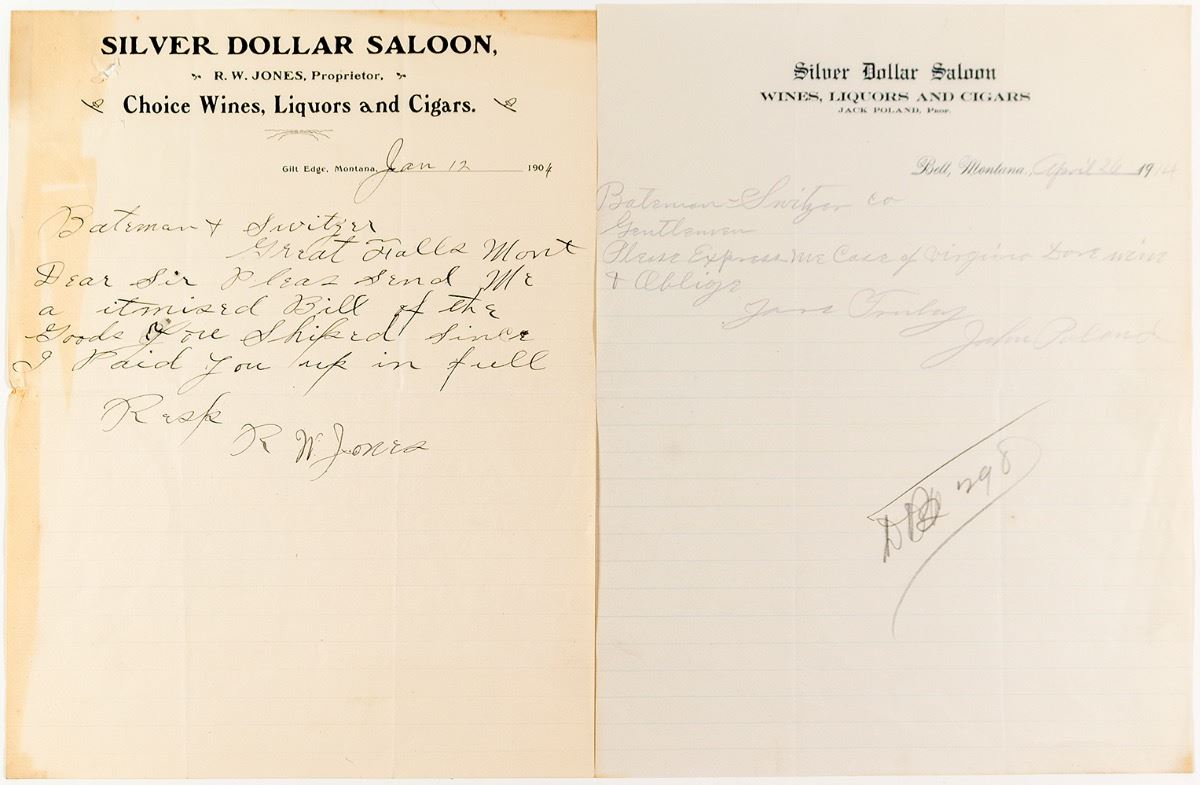 SILVER DOLLAR SALOON,
R. W. JONES, Proprietor,
Choice Wines, Liquors and Cigars.
Gilt Edge, Montana, Jan 12 1904
Bateman & Switzer
Great Falls Mont
Dear Sir Pleas send Me
a itmised Bill of the
Goods You Shiped since
I Paid You up in full
Resp
R W Jones
Silver Dollar Saloon
WINES, LIQUORS AND CIGARS
JACK POLAND, Prop.
Belt, Montana, April 26 1914
Bateman-Switzer co
Gentlemen
Please Express me Case of Virginia Dare wine
& Oblige
Yours Truley
John Poland
298